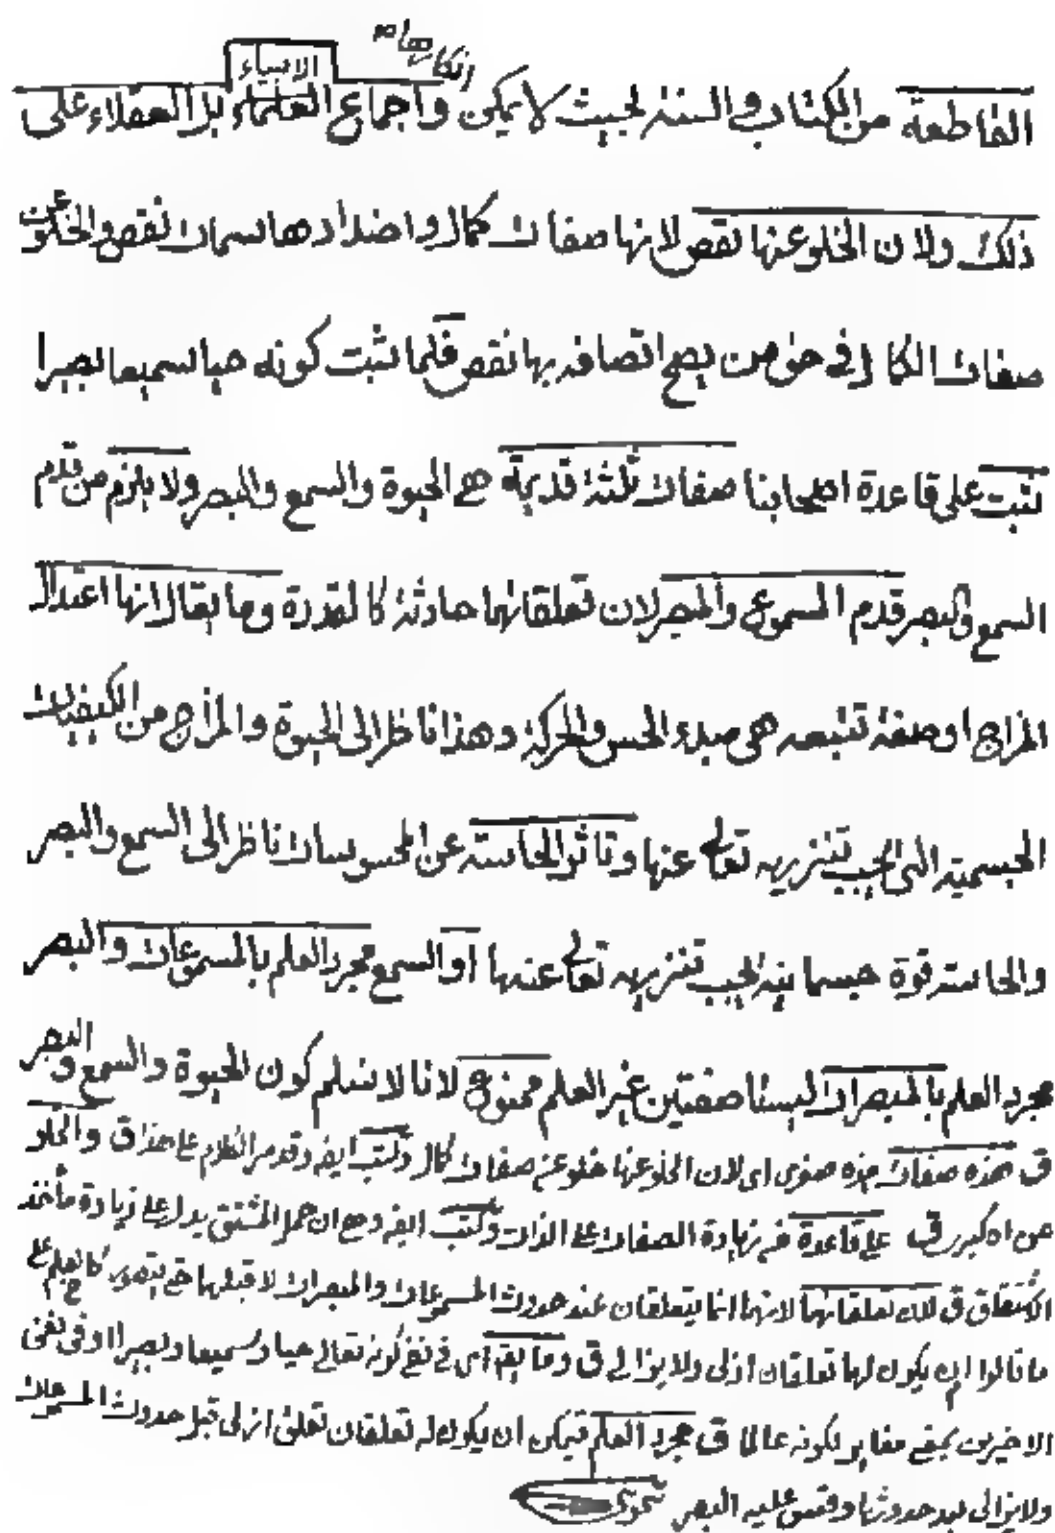 انكارها م
الانبياء
القاطعة من الكتاب والسنة بحيث لا يمكن واجماع العلماء بل العقلاء على
ذلك ولان الخلو عنها نقص لانها صفات كمال واضدادها سمات نقص والخلو عن
صفات الكمال في حق من يصح اتصافه بها نقص فلما ثبت كونه حيا سميعا بصيرا
ثبت على قاعدة اصحابنا صفات ثلثة قديمة هي الحيوة والسمع والبصر ولا يلزم من قدم
السمع والبصر قدم المسموع والمبصر لان تعلقاتهما حادثة كالقدرة وما يقال انها اعتدال
المزاج او صفة تتبعه هي مبدء الحس والحركة وهذا ناظر الى الحيوة والمزاج من الكيفيات
الجسمية التي يجب تنزيهه تعالى عنها وتاثر الحاسة عن المحسوسات ناظر الى السمع والبصر
والحاسة قوة جسمانية يجب تنزيهه تعالى عنها او السمع مجرد العلم بالمسموعات والبصر
مجرد العلم بالمبصرات ليستا صفتين غير العلم ممنوع لانا لا نسلم كون الحيوة والسمع والبصر
ق هذه صفات هذه صغرى اى لان الخلو عنها خلو عن صفات كمال وكتب ايضا وقد مر الكلام على هذا ق والخلو
عن اه كبرى ق على قاعدة في زيادة الصفات على الذات وكتب ايضا وهي ان حمل المشتق يدل على زيادة مأخذ
الاشتقاق ق لان تعلقاتهما لانهما انما يتعلقان عند حدوث المسموعات والمبصرات لا قبلها كالعلم على
ما قالوا ان يكون لها تعلقان ازلى ولا يزالى ق وما يقال اى في نفى كونه تعالى حيا وسميعا وبصيرا او في نفى
الاخيرين بمعنى مغاير لكونه عالما ق مجرد العلم فيمكن ان يكون له تعلقان تعلق ازلى قبل حدوث المسموعات
ولا يزالى بعد حدوثها وقس عليه البصر